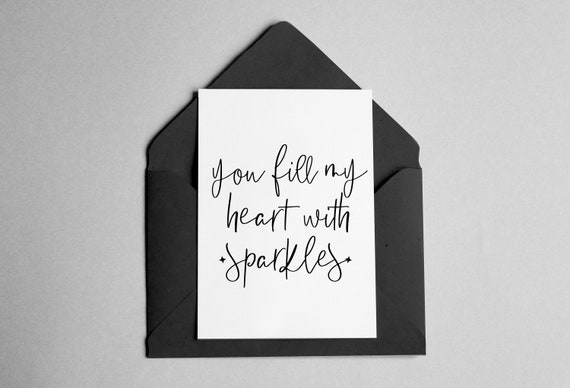 you fill my
heart with
sparkles